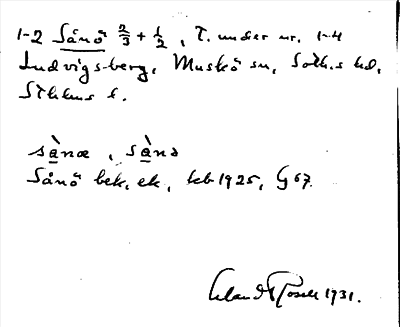 1-2 Sånö 2/3 + 1/2, T. under nr. 1-4
Ludvigsberg, Muskö sn, Soth.s hd,
Sthlms l.
sànœ, sànə
Sånö bek, ek, kb 1925, G 67.
Erland Rosell 1931.